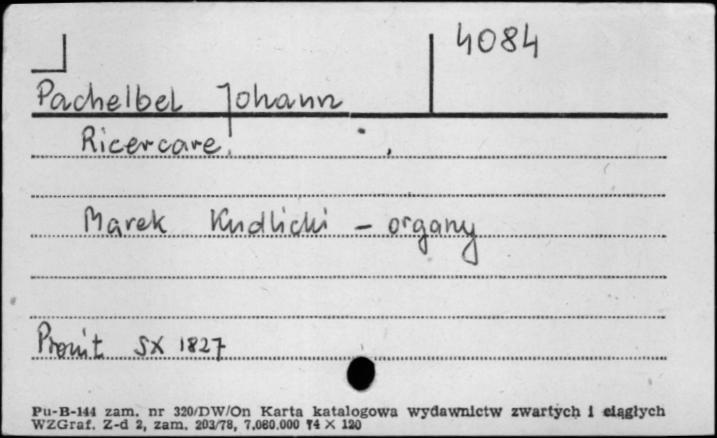 4084
Pachelbel Johann
Ricercare
Marek Kudlicki - organy
Pronit SX 1827
Pu-B-144 zam. nr 320/DW/On Karta katalogowa wydawnictw zwartych i ciągłych
WZGraf. Z-d 2, zam. 203/78, 7,080.000 74 X 120